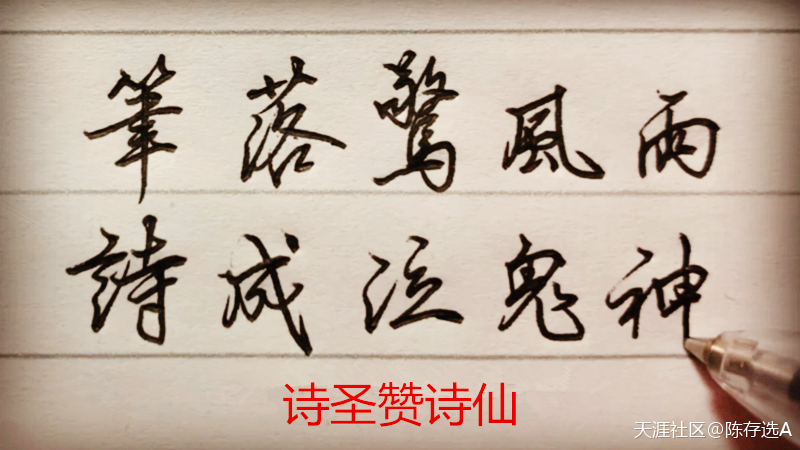 筆落驚風雨
詩成泣鬼神
诗圣赞诗仙
天涯社区@陈存选A